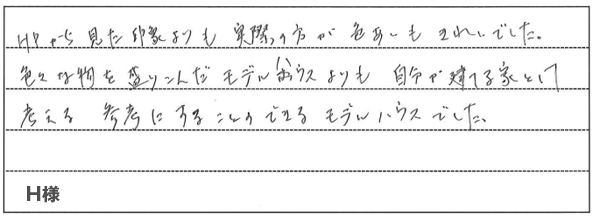 HPから見た印象よりも実際の方が色あいもきれいでした。
色々な物を盛りこんだモデルハウスよりも自分が建てる家として
考える参考にすることのできるモデルハウスでした。
H様